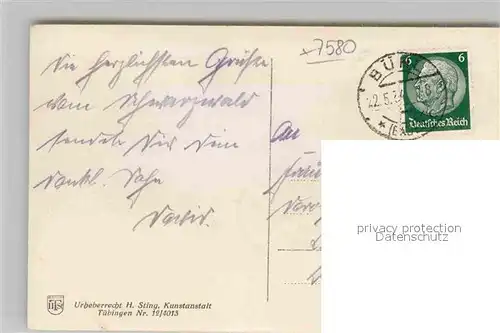 x7580
Die herzlichsten Grüße
vom Schwarzwald
senden Dir Dein
dankb. Sohn
An
BÜH
22.5.34
6 6
Deutsches Reich
privacy protection
Datenschutz
Urheberrecht H. Sting, Kunstanstalt
Tübingen Nr. 12/4013